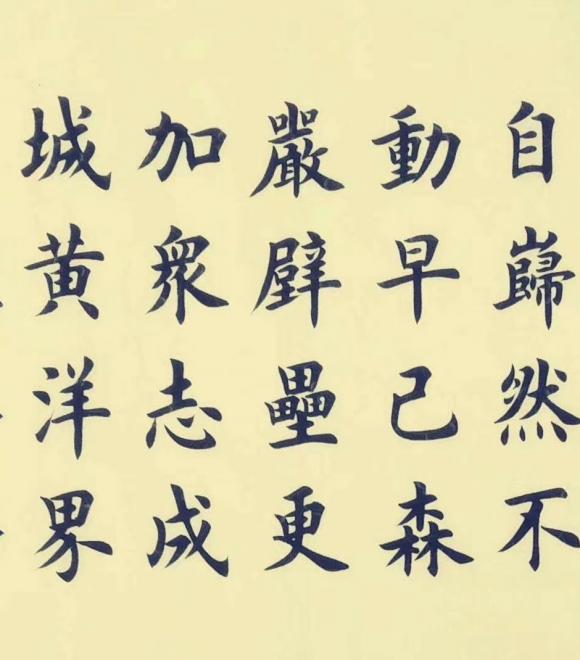 自巋然不
動早已森
嚴壁壘更
加衆志成
城黄洋界